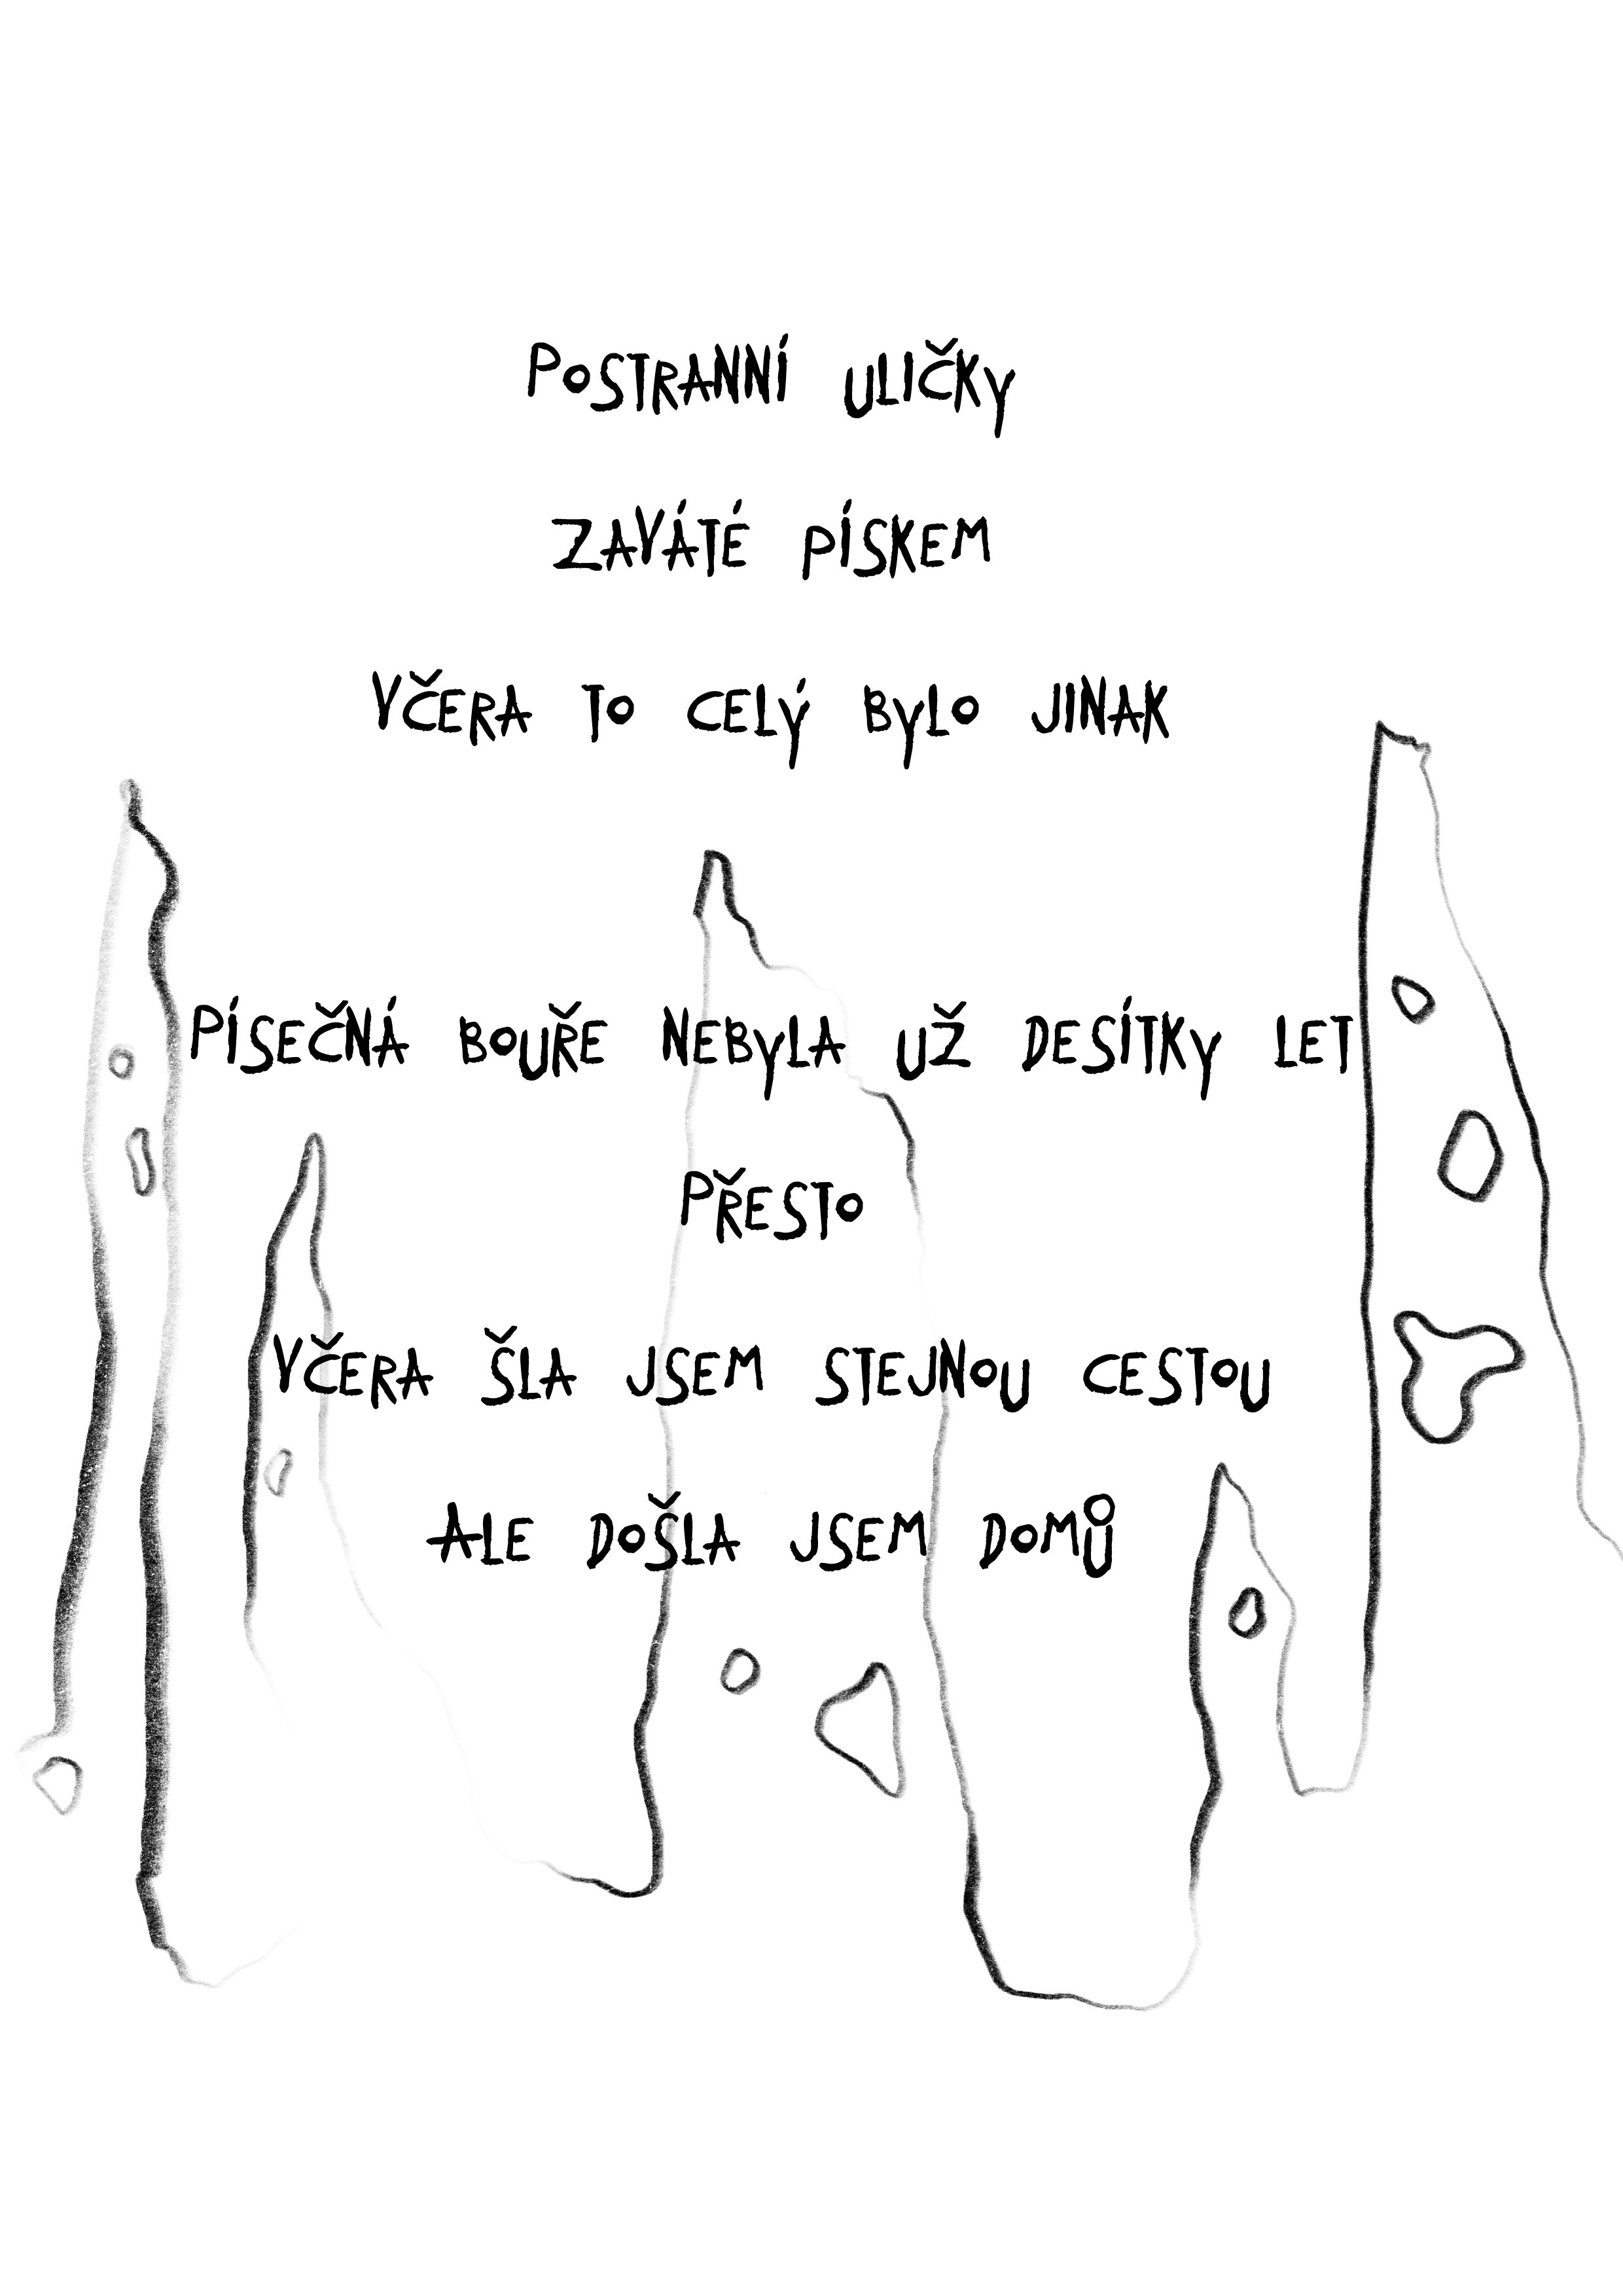 Postranní uličky
zaváté pískem
Včera to celý bylo jinak
Písečná bouře nebyla už desítky let
Přesto
Včera šla jsem stejnou cestou
Ale došla jsem domů